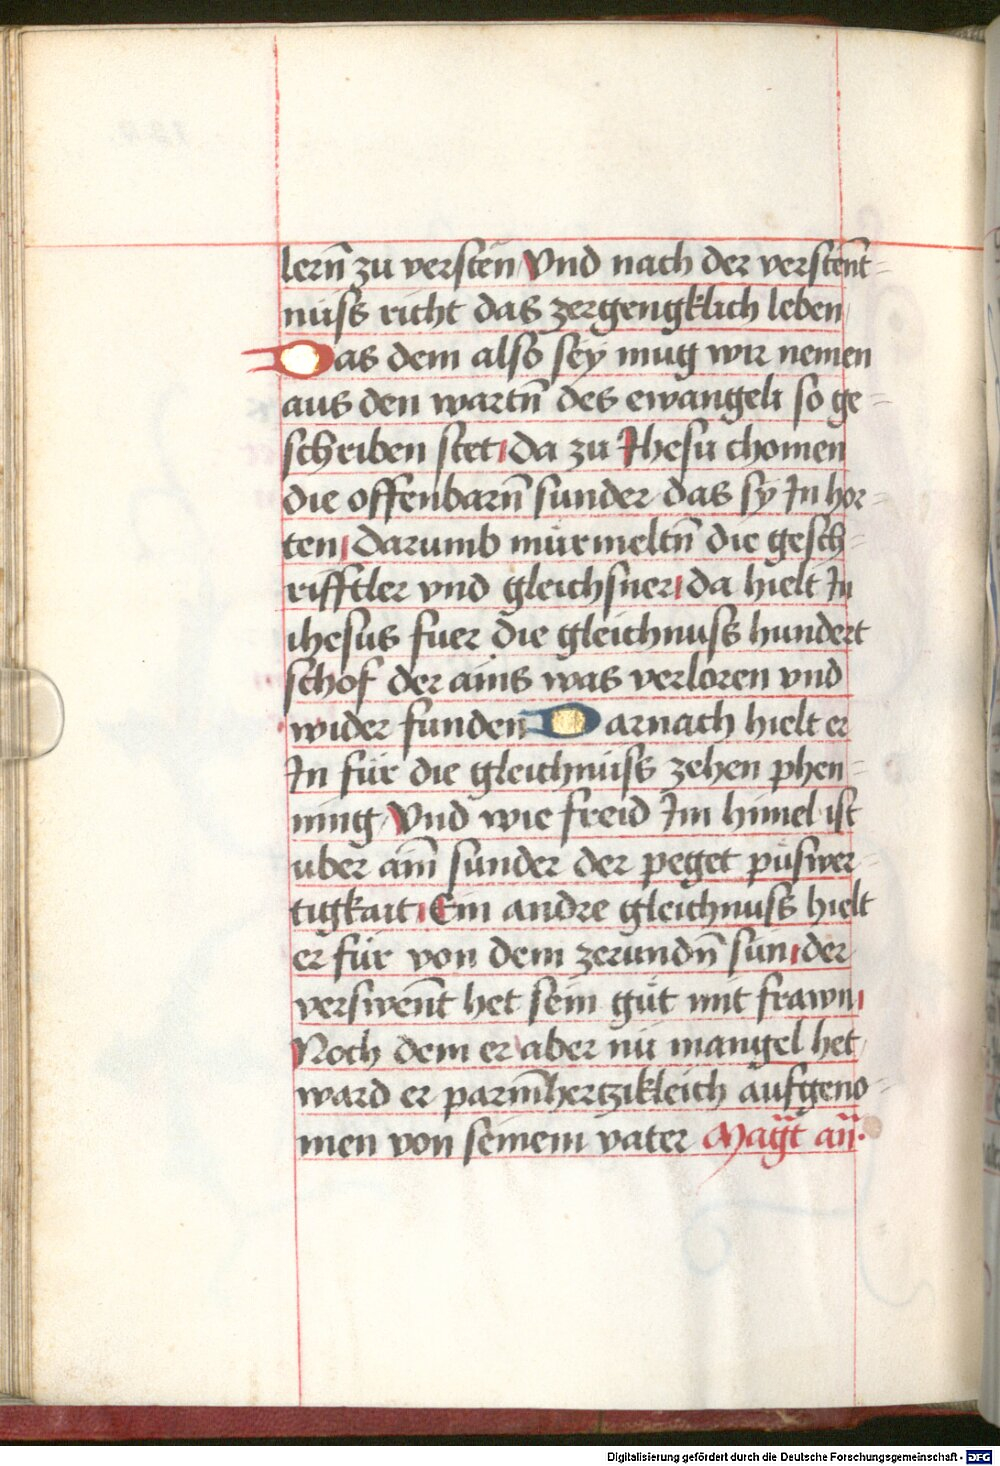 lern̄ zu versten Vnd nach der verstent-
nuss richt das zergengklich leben
Das dem also sey mug wir nemen
aus den wartn̄ des ewangeli so ge-
schriben stet da zu Jhesu chomen
die offenbarn̄ sunder das sy Jn hor-
ten darumb murmeltn̄ die gesch-
rifftler vnd gleichsner da hielt Jn
ihesus fuer die gleichnuss hundert
schof der ains was verloren vnd
wider funden Darnach hielt er
Jn für die gleichnuss zehen phen-
ning Vnd wie freid Jm himel ist
uber aim̄ sunder der peget puswer-
tigkait Ein andre gleichnuss hielt
er für von dem zerundn̄ sun der
verswen̄t het sein gut mit frawn
Noch dem er aber nu mangel het
ward er parm̄hertzikleich aufgeno-
men von seinem vater
Digitalisierung gefördert durch die Deutsche Forschungsgemeinschaft - DFG